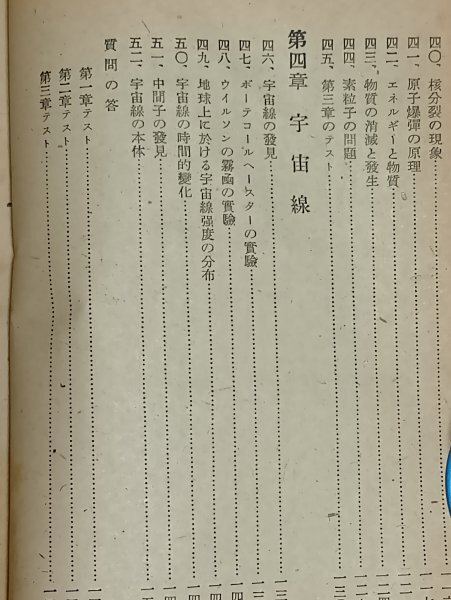 四〇、核分裂の現象
四一、原子爆彈の原理
四二、エネルギーと物質
四三、物質の消滅と發生
四四、素粒子の問題
四五、第三章のテスト
第四章　宇宙線
四六、宇宙線の發見
四七、ボーテコールヘースターの實驗
四八、ウイルソンの霧凾の實驗
四九、地球上に於ける宇宙線强度の分布
五〇、宇宙線の時間的變化
五一、中間子の發見
五二、宇宙線の本体
質問の答
第一章テスト
第二章テスト
第三章テスト